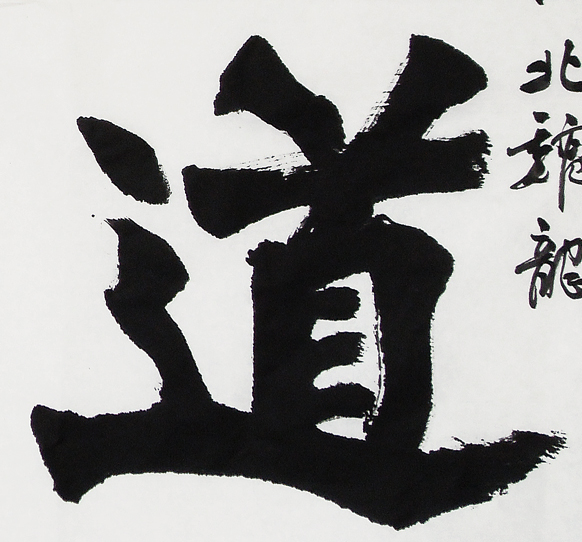 北魏龍
道